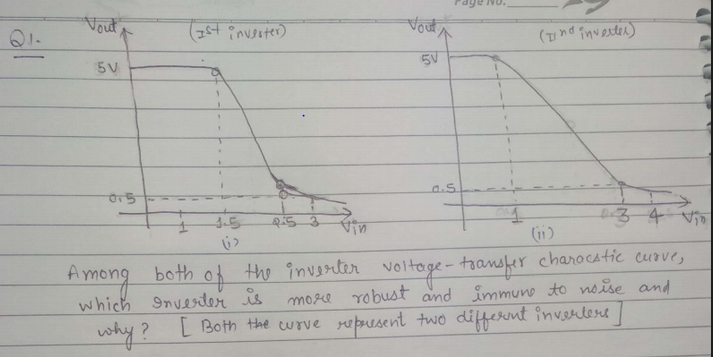 Page No.
Q1.
Vout (Ist inverter)
5V
0.5
1 1.5 2.5 3 Vin
(i)
Vout (IInd inverter)
5V
0.5
1 3 4 Vin
(ii)
Among both of the inverter voltage-transfer charocstic curve,
which Inverter is more robust and immune to noise and
why? [Both the curve represent two different inverters]